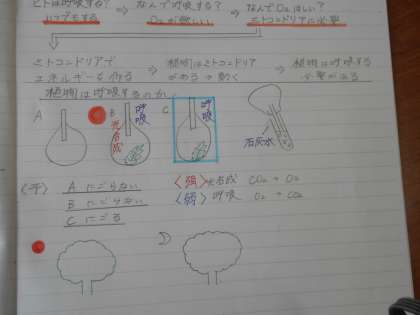 ヒトは呼吸する? ⇒ なんで呼吸する? ⇒ なんでO₂ほしい?
O₂が欲しい ミトコンドリアに必要
ミトコンドリアで ⇒ 植物はミトコンドリア ⇒ 植物は呼吸する
エネルギーを作る がある→動く 必要がある
植物は呼吸するのか。
A B 光合成 呼吸 C 呼吸
石灰水
A にごらない 〈強〉光合成 CO₂→O₂
B にごらない 〈弱〉呼吸 O₂→CO₂
C にごる